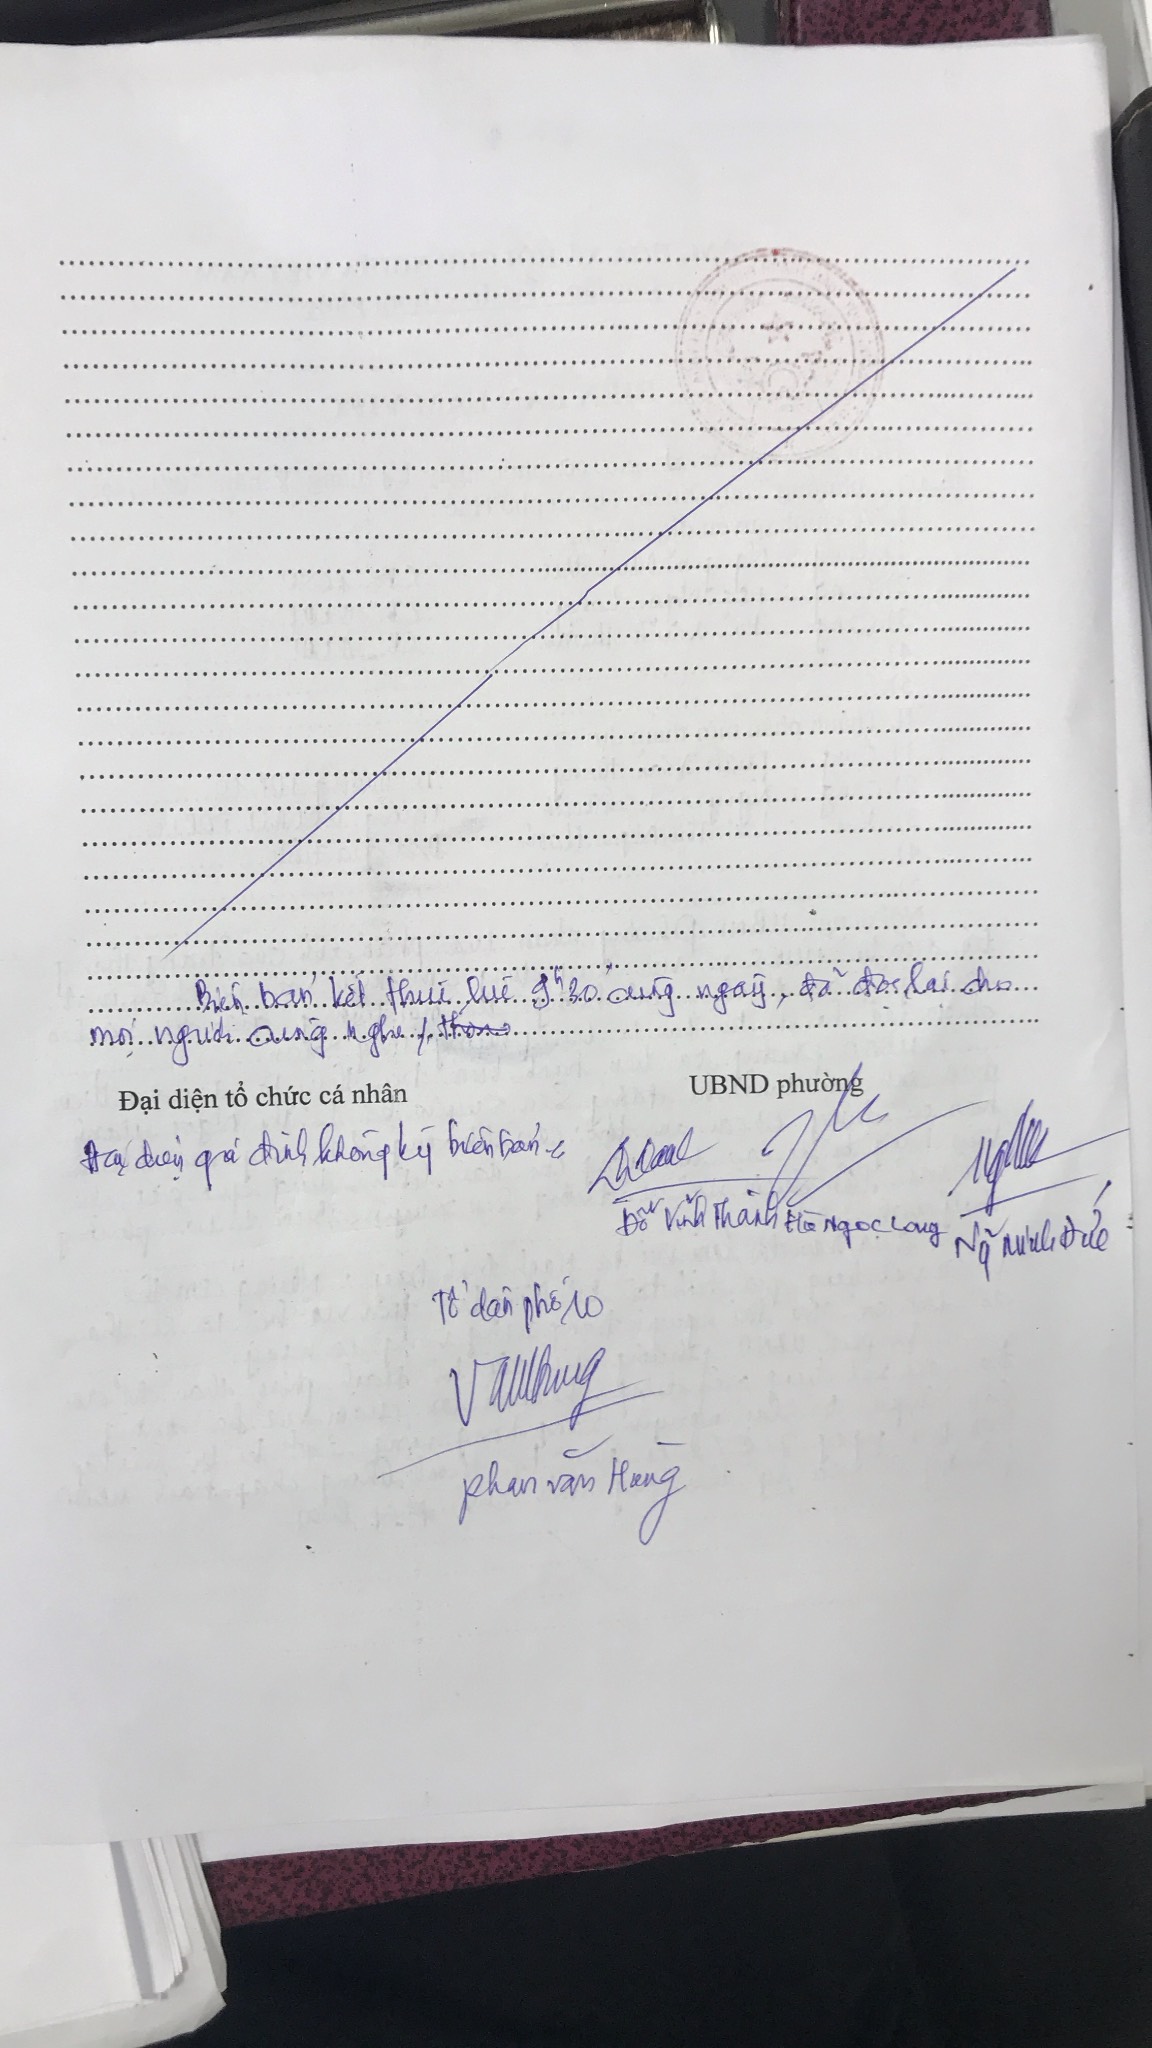 Biên bản kết thúc lúc 9h30 cùng ngày, đã đọc lại cho
mọi người cùng nghe /.
Đại diện tổ chức cá nhân
UBND phường
Đại diện gia đình không ký biên bản
Đỗ Vĩnh Thành Hà Ngọc Long
Ng Minh Đức
Tổ dân phố 10
Phan Văn Hùng